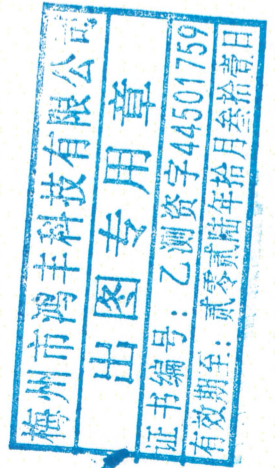 梅州市鸿丰科技有限公司
出图专用章
证书编号：乙测资字44501759
有效期至：贰零贰陆年拾月叁拾壹日